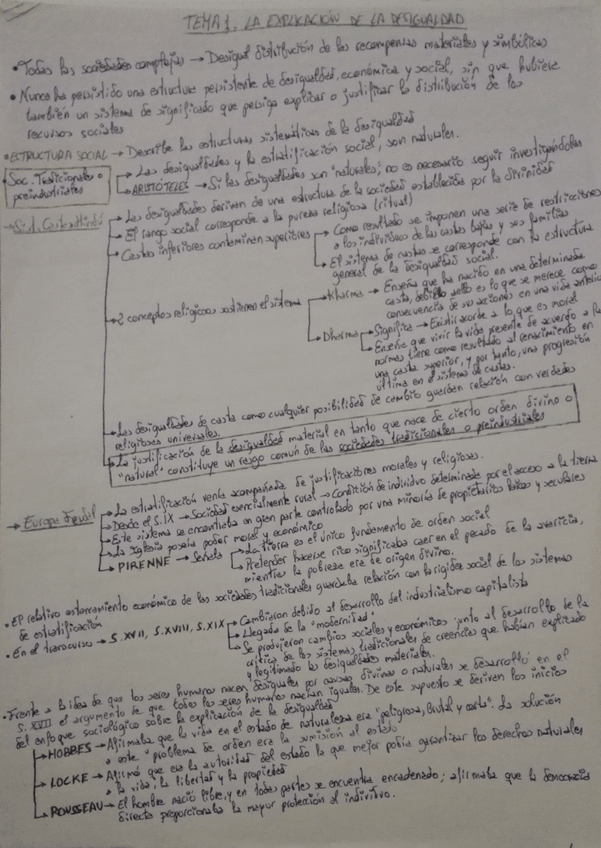 TEMA 1. LA EXPLICACIÓN DE LA DESIGUALDAD
• Todas las sociedades complejas → Desigual distribución de las recompensas materiales y simbólicas
• Nunca ha persistido una estructura persistente de desigualdad, económica y social, sin que hubiere
también un sistema de significado que persiga explicar o justificar la distribución de los
recursos sociales
• ESTRUCTURA SOCIAL → Describe las estructuras sistemáticas de la desigualdad
Soc. Tradicionales o
preindustriales
→ Las desigualdades y la estratificación social, son naturales.
→ ARISTÓTELES → Si las desigualdades son "naturales", no es necesario seguir investigándolas
→ Sist. Castas Hindú
→ Las desigualdades derivan de una estructura de la sociedad establecida por la divinidad
→ El rango social corresponde a la pureza religiosa (ritual)
→ Castas inferiores contaminan superiores
→ Como resultado se imponen una serie de restricciones
a los individuos de las castas bajas y sus familias
→ El sistema de castas se corresponde con la estructura
general de la desigualdad social.
→ 2 conceptos religiosos sostienen el sistema
→ Kharma → Enseña que ha nacido en una determinada
casta, debido a ello es lo que se merece como
consecuencia de sus acciones en una vida anterior
→ Dharma
→ Significa → Existir acorde a lo que es moral
→ Enseña que vivir la vida presente de acuerdo a las
normas tiene como resultado el renacimiento en
una casta superior, y por tanto, una progresión
última en el sistema de castas.
→ Las desigualdades de casta como cualquier posibilidad de cambio guardan relación con verdades
religiosas universales.
→ La justificación de la desigualdad material en tanto que nace de cierto orden divino o
"natural" constituye un rasgo común de las sociedades tradicionales o preindustriales
→ Europa Feudal
→ La estratificación venía acompañada de justificaciones morales y religiosas.
→ Desde el S. IX → Sociedad esencialmente rural → Condición de individuo determinada por el acceso a la tierra
→ Este sistema se encontraba en gran parte controlado por una minoría de propietarios laicos y seculares
→ La Iglesia poseía poder moral y económico
→ PIRENNE → Señala
→ La tierra es el único fundamento de orden social
→ Pretender hacerse rico significaba caer en el pecado de la avaricia,
mientras la pobreza era de origen divino.
• El relativo estancamiento económico de las sociedades tradicionales guardaba relación con la rigidez social de los sistemas
de estratificación
• En el transcurso → S. XVII, S. XVIII, S. XIX
→ Cambiaron debido al desarrollo del industrialismo capitalista
→ Llegada de la "modernidad"
→ Se produjeron cambios sociales y económicos junto al desarrollo de la
crítica de los sistemas tradicionales de creencias que habían explicado
y legitimado las desigualdades materiales.
• Frente a la idea de que los seres humanos nacen desiguales por causas divinas o naturales se desarrolló en el
S. XVIII el argumento de que todos los seres humanos nacían iguales. De este supuesto se deriven los inicios
del enfoque sociológico sobre la explicación de la desigualdad
→ HOBBES → Afirmaba que la vida en el estado de naturaleza era "peligrosa, brutal y corta". La solución
a este "problema de orden era la sumisión al estado
→ LOCKE → Afirmó que era la autoridad del estado la que mejor podía garantizar los derechos naturales
a la vida, la libertad y la propiedad
→ ROUSSEAU → El hombre nació libre, y en todas partes se encuentra encadenado; afirmaba que la democracia
directa proporcionaba la mayor protección al individuo.